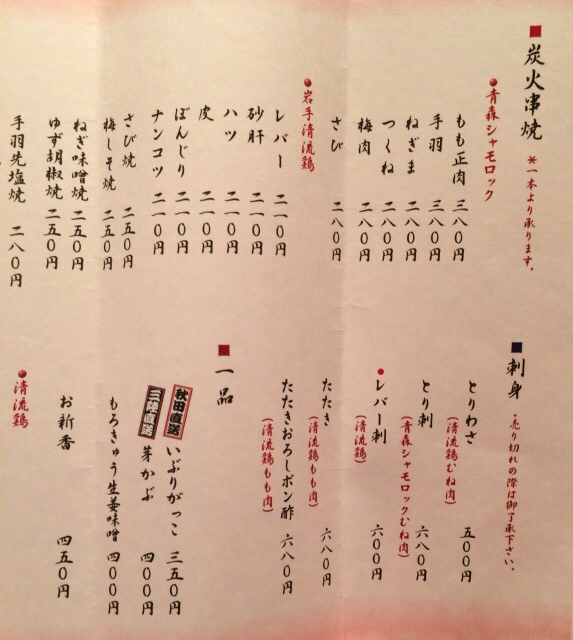 炭火串焼
*一本より承ります。
青森シャモロック
もも正肉 三八〇円
手羽 三八〇円
ねぎま 二八〇円
つくね 二八〇円
梅肉 二八〇円
さび 二八〇円
岩手清流鶏
レバー 二一〇円
砂肝 二一〇円
ハツ 二一〇円
皮 二一〇円
ぼんじり 二一〇円
ナンコツ 二一〇円
さび焼 二五〇円
梅しそ焼 二五〇円
ねぎ味噌焼 二五〇円
ゆず胡椒焼 二五〇円
手羽先塩焼 二八〇円
刺身
・売り切れの際は御了承下さい。
とりわさ 五〇〇円
(清流鶏むね肉)
とり刺 六八〇円
(青森シャモロックむね肉)
レバー刺 六〇〇円
(清流鶏)
たたき 六八〇円
(清流鶏もも肉)
たたきおろしポン酢 六八〇円
(清流鶏もも肉)
一品
秋田直送 いぶりがっこ 三五〇円
三陸直送 芽かぶ 四〇〇円
もろきゅう生姜味噌 四〇〇円
お新香 四五〇円
清流鶏